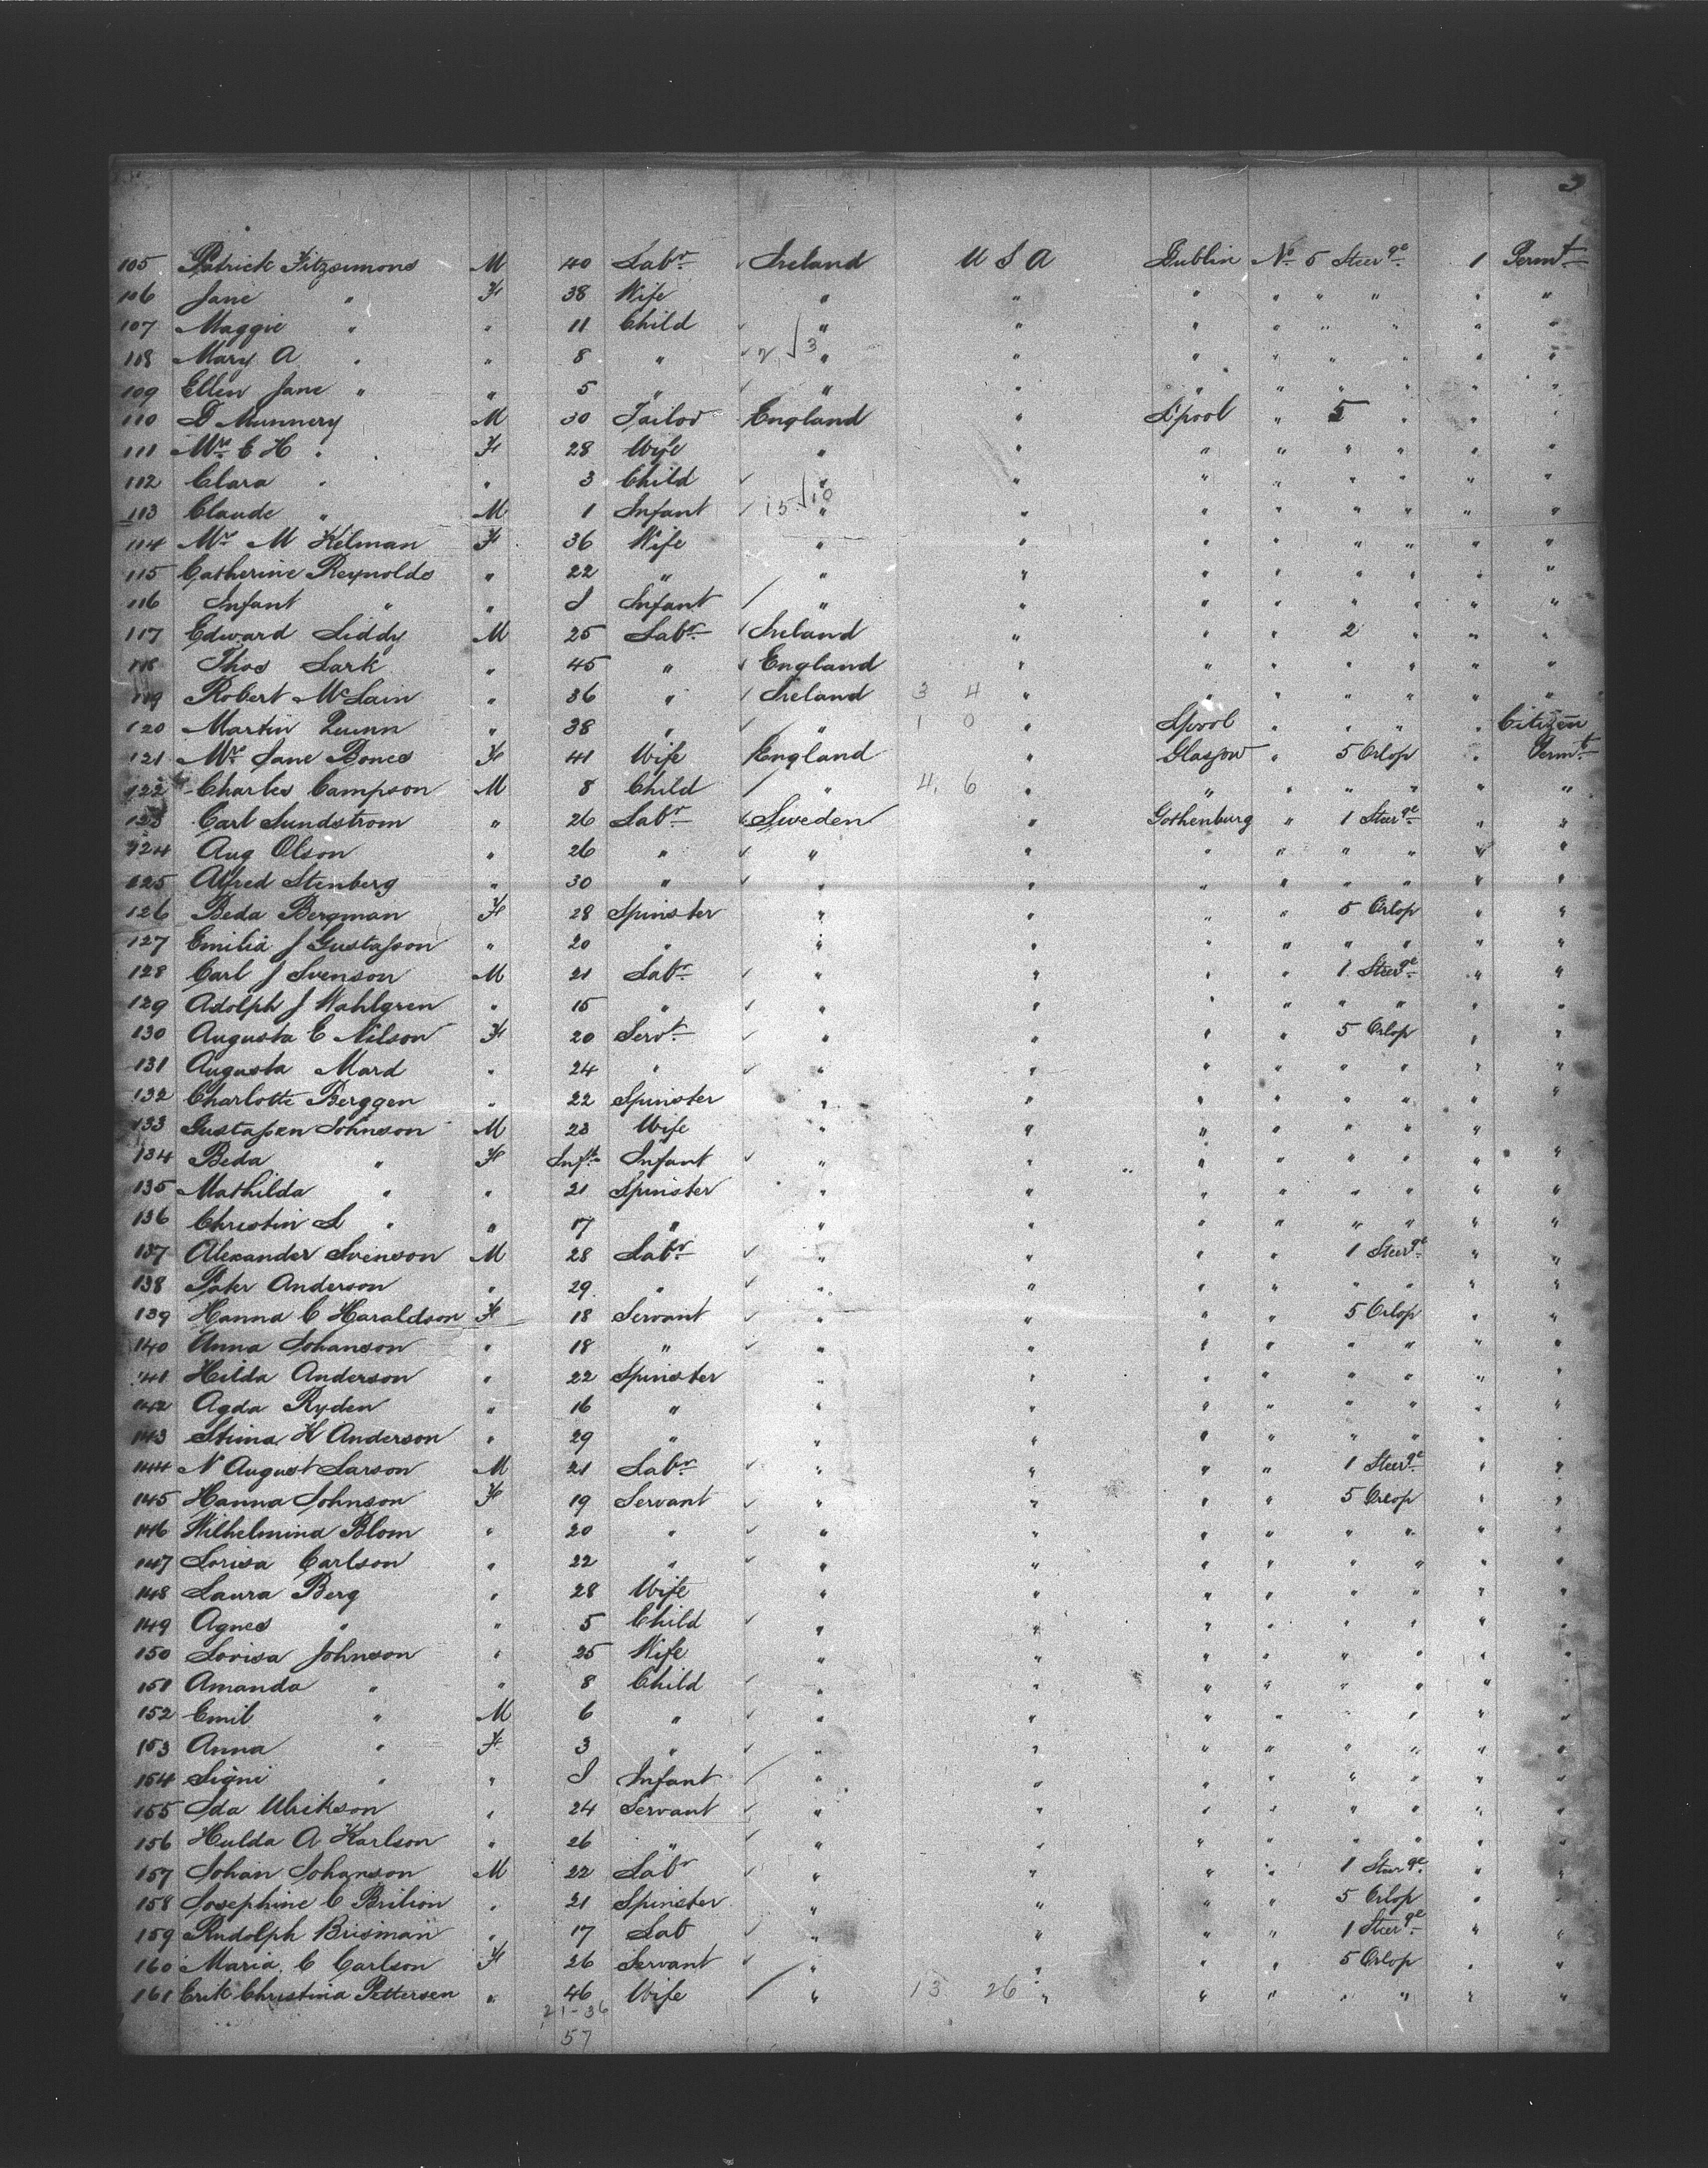 3
105 Patrick Fitzsimons M 40 Labr Ireland U S A Dublin No 5 Steerge 1 Permt
106 Jane " F 38 Wife " " " " " " " "
107 Maggie " " 11 Child " " " " " " " "
118 Mary A " " 8 " " " " " " " " "
109 Ellen Jane " " 5 " " " " " " " " "
110 D Munnery M 30 Tailor England " L'pool " 5 " " "
111 Mrs E H " F 28 Wife " " " " " " " "
112 Clara " " 3 Child " " " " " " " "
113 Claude " M 1 Infant " " " " " " " "
114 Mrs M Kelman F 36 Wife " " " " " " " "
115 Catherine Reynolds " 22 " " " " " " " " "
116 Infant " " Infant " " " " " " " "
117 Edward Liddy M 25 Labr Ireland " " " 2 " " "
118 Thos Lark " 45 " England " " " " " " "
119 Robert McLain " 36 " Ireland 3 4 " " " " " " "
120 Martin Quinn " 38 " " 1 0 " L'pool " " " " Citizen
121 Mrs Jane Bones F 41 Wife England " Glasgow " 5 Orlop " Permt
122 Charles Campson M 8 Child " 4 6 " " " " " " "
123 Carl Sundstrom " 26 Labr Sweden " Gothenburg " 1 Steerge " "
124 Aug Olson " 26 " " " " " " " " "
125 Alfred Stenberg " 30 " " " " " " " " "
126 Beda Bergman F 28 Spinster " " " " 5 Orlop " "
127 Emilia J Gustafson " 20 " " " " " " " " "
128 Carl J Svenson M 21 Labr " " " " 1 Steerge " "
129 Adolph J Wahlgren " 15 " " " " " " " " "
130 Augusta C Nilson F 20 Servt " " " " 5 Orlop " "
131 Augusta Mard " 24 " " " " " " " " "
132 Charlotte Berggen " 22 Spinster " " " " " " " "
133 Gustafsen Johnson M 23 Wife " " " " " " "
134 Beda " F Inft Infant " " " " " " "
135 Mathilda " " 21 Spinster " " " " " " " "
136 Christin S " " 17 " " " " " " " " "
137 Alexander Svenson M 28 Labr " " " " 1 Steerge " "
138 Pater Anderson " 29 " " " " " " " " "
139 Hanna C Haraldson F 18 Servant " " " " 5 Orlop " "
140 Anna Johanson " 18 " " " " " " " " "
141 Hilda Anderson " 22 Spinster " " " " " " " "
142 Agda Ryden " 16 " " " " " " " " "
143 Stina H Anderson " 29 " " " " " " " " "
144 N August Larson M 21 Labr " " " " 1 Steerge " "
145 Hanna Johnson F 19 Servant " " " " 5 Orlop " "
146 Wilhelmina Blom " 20 " " " " " " " " "
147 Lorisa Carlson " 22 " " " " " " " " "
148 Laura Berg " 28 Wife " " " " " " " "
149 Agnes " " 5 Child " " " " " " "
150 Lovisa Johnson " 25 Wife " " " " " " " "
151 Amanda " " 8 Child " " " " " " " "
152 Emil " M 6 " " " " " " " " "
153 Anna " F 3 " " " " " " " " "
154 Signi " " Infant " " " " " " " "
155 Ida Ulrikson " 24 Servant " " " " " " " "
156 Hulda A Karlson " 26 " " " " " " " " "
157 Johan Johanson M 22 Labr " " " " 1 Steerge " "
158 Josephine C Brilion " 21 Spinster " " " " 5 Orlop " "
159 Rudolph Brisman " 17 Lab " " " " 1 Steerge " "
160 Maria C Carlson F 26 Servant " " " " 5 Orlop " "
161 Erik Christina Pettersen " 46 Wife " 13 26 " " " " " " "
21-36
57